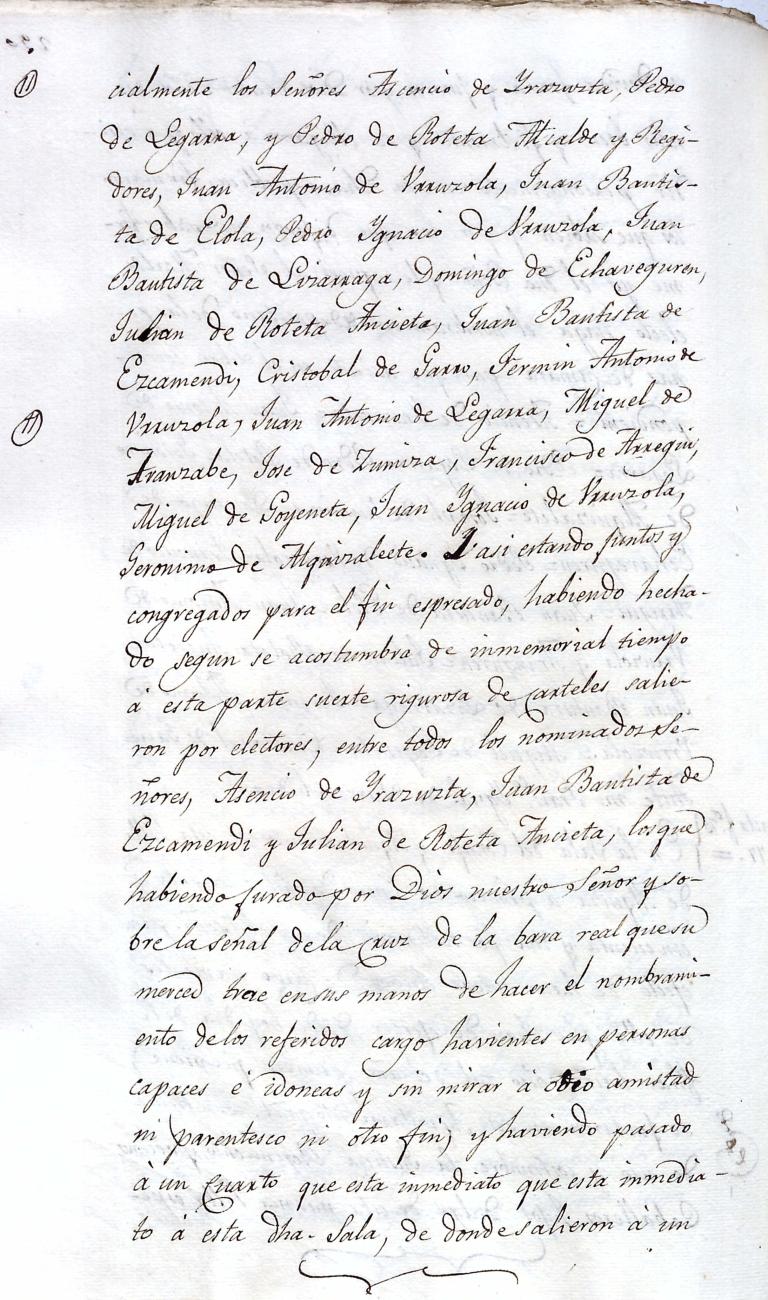 cialmente los Señores Ascencio de Yrazuzta, Pedro
de Legarra, y Pedro de Roteta Alcalde y Regi-
dores, Juan Antonio de Vrruzola, Juan Bautis-
ta de Elola, Pedro Ygnacio de Vrruzola, Juan
Bautista de Lizarraga, Domingo de Echaveguren,
Julian de Roteta Ancieta, Juan Bautista de
Ezcamendi, Cristobal de Garro, Fermin Antonio de
Vrruzola, Juan Antonio de Legarra, Miguel de
Aranzabe, Jose de Zumiza, Francisco de Arregui,
Miguel de Goyeneta, Juan Ygnacio de Vrruzola,
Geronimo de Alquizaleete. Y asi estando juntos y
congregados para el fin espresado, habiendo hecha-
do segun se acostumbra de inmemorial tiempo
á esta parte suerte rigurosa de carteles salie-
ron por electores, entre todos los nominados Se-
ñores, Asencio de Yrazuzta, Juan Bautista de
Ezcamendi y Julian de Roteta Ancieta, los que
habiendo jurado por Dios nuestro Señor y so-
bre la señal de la Cruz de la bara real que su
merced trae en sus manos de hacer el nombrami-
ento de los referidos cargo havientes en personas
capaces é idoneas y sin mirar á odio amistad
ni parentesco ni otro fin, y haviendo pasado
á un Cuarto que esta inmediato que esta inmedia-
to á esta dha. Sala, de donde salieron á un